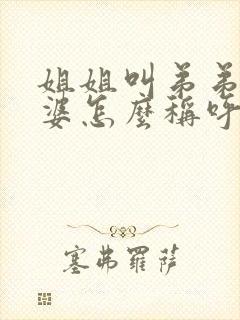 姐姐叫弟弟
婆怎麼稱呼
塞弗羅薩